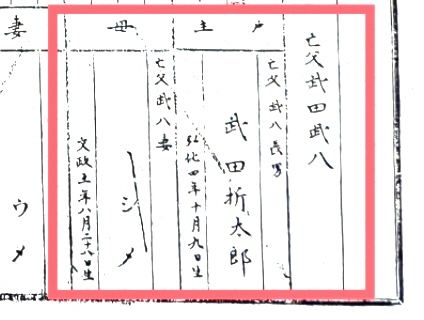 亡父武田武八
戸主
亡父武八長男
武田折太郎
弘化四年十月九日生
母
亡父武八妻
シメ
文政五年八月二十八日生
妻
ウメ